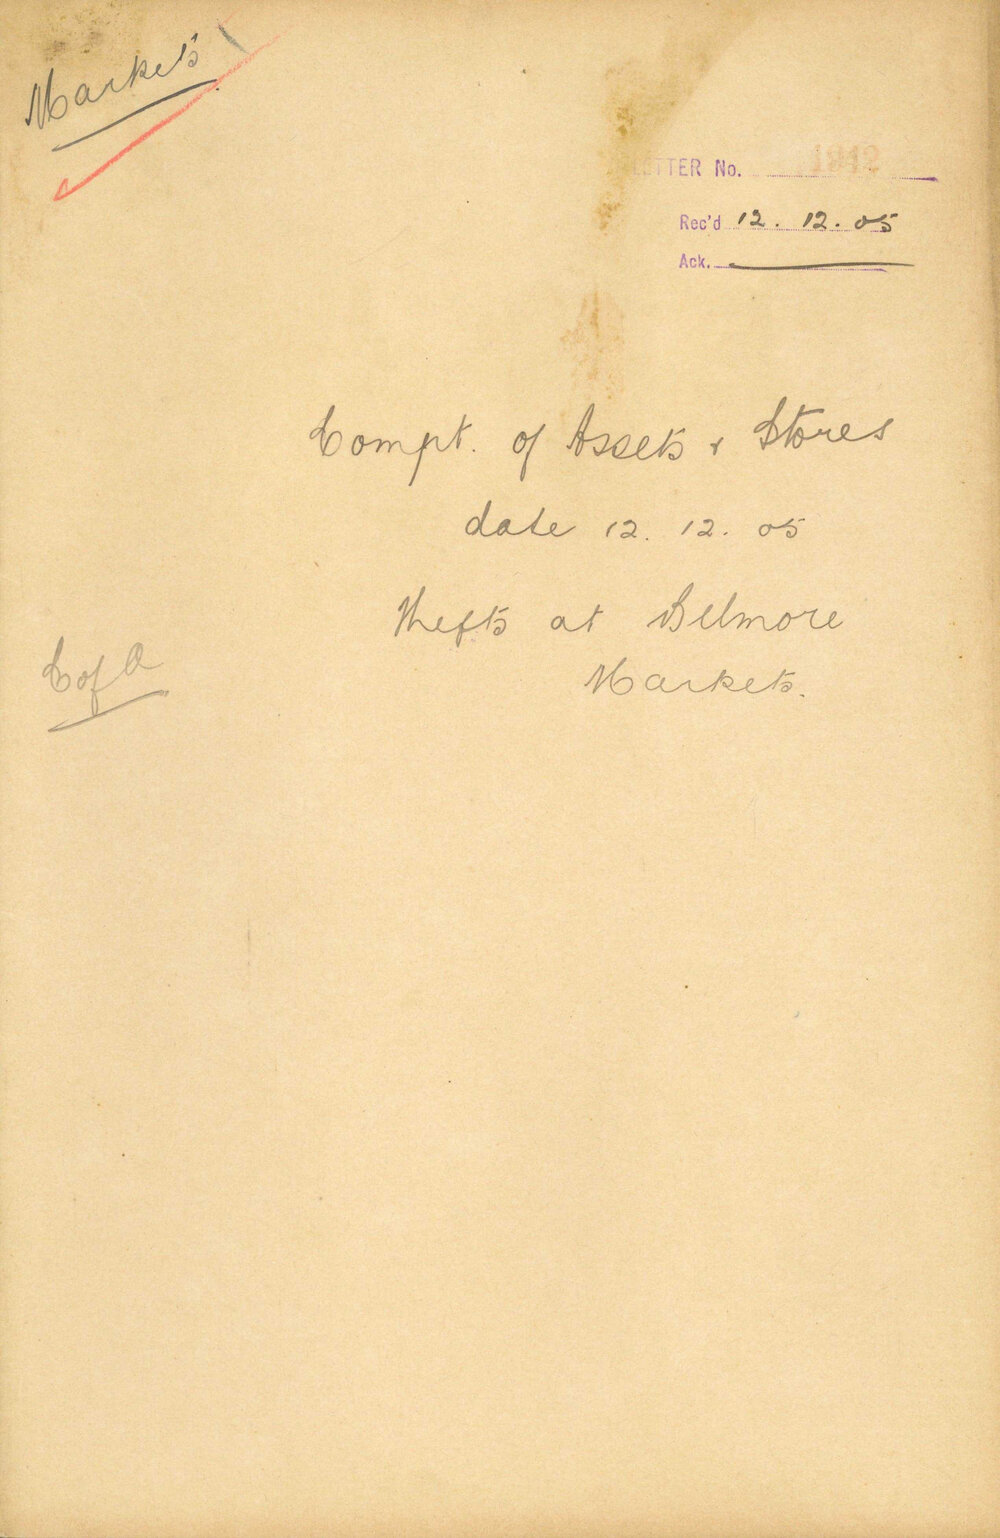 Markets
LETTER No. 1942
Rec'd 12. 12. 05
Ack.
Compt. of Assets & Stores
date 12. 12. 05
Thefts at Belmore
Markets.
C of A